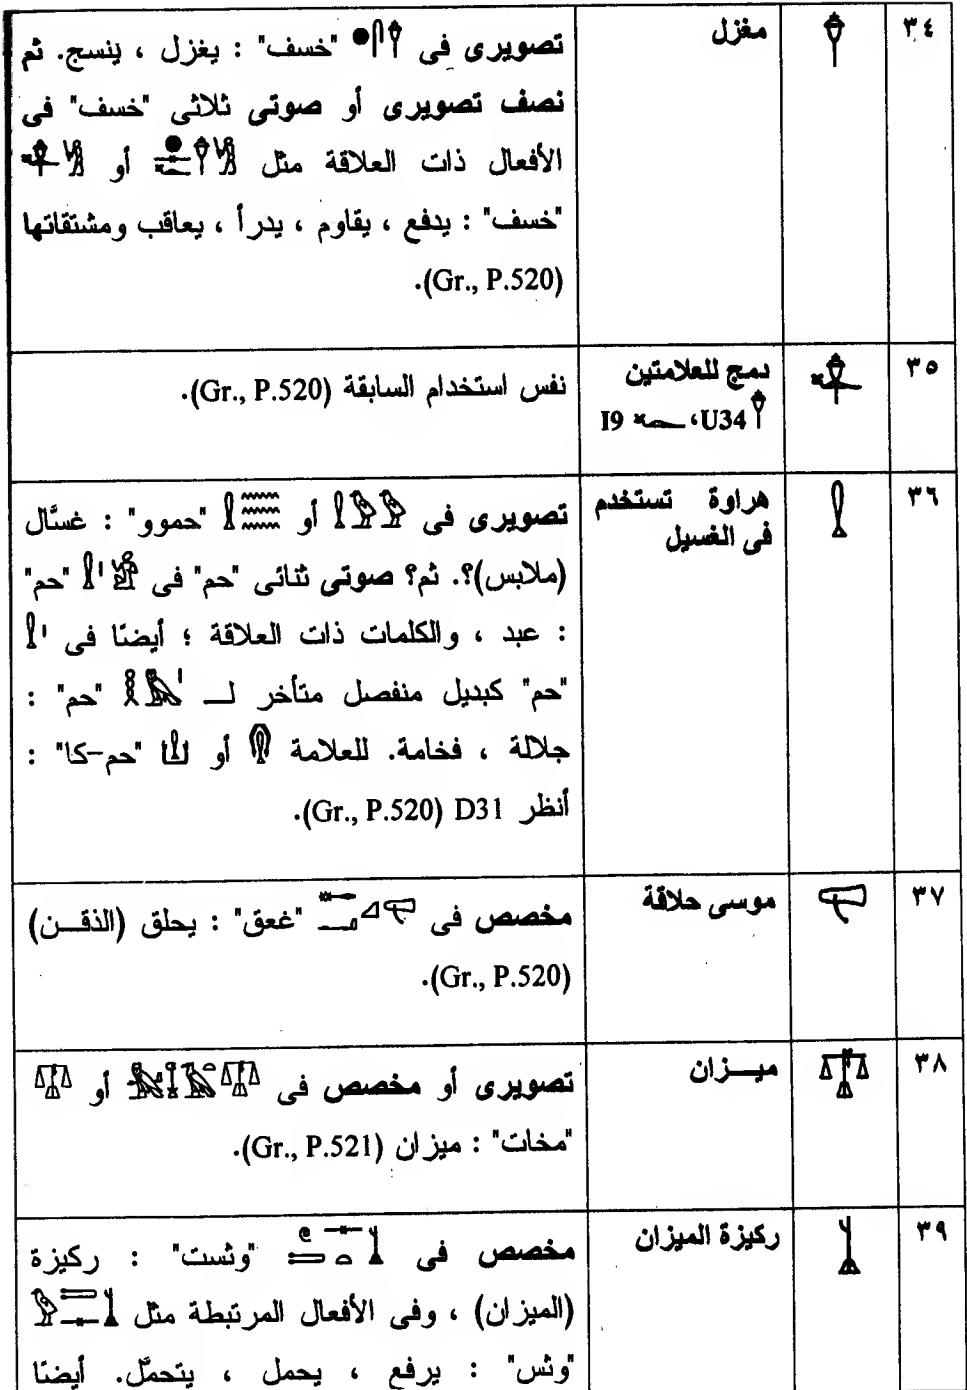 ٣٤ 𓍋 مغزل تصويرى فى 𓍋𓋴𓐍 "خسف" : يغزل ، ينسج. ثم
نصف تصويرى أو صوتى ثلاثى "خسف" فى
الأفعال ذات العلاقة مثل أو
"خسف" : يدفع ، يقاوم ، يدرأ ، يعاقب ومشتقاتها
(Gr., P.520).
٣٥ دمج للعلامتين نفس استخدام السابقة (Gr., P.520).
U34، I9
٣٦ هراوة تستخدم تصويرى فى أو "حموو" : غسَّال
فى الغسيل (ملابس)؟. ثم؟ صوتى ثنائى "حم" فى "حم"
: عبد ، والكلمات ذات العلاقة ؛ أيضنًا فى
"حم" كبديل منفصل متأخر لــ "حم" :
جلالة ، فخامة. للعلامة أو "حم-كا" :
أنظر D31 (Gr., P.520).
٣٧ موسى حلاقة مخصص فى "غعق" : يحلق (الذقــن)
(Gr., P.520).
٣٨ ميــــزان تصويرى أو مخصص فى أو
"مخات" : ميزان (Gr., P.521).
٣٩ ركيزة الميزان مخصص فى "وثست" : ركيزة
(الميزان) ، وفى الأفعال المرتبطة مثل
"وثس" : يرفع ، يحمل ، يتحمَّل. أيضنًا